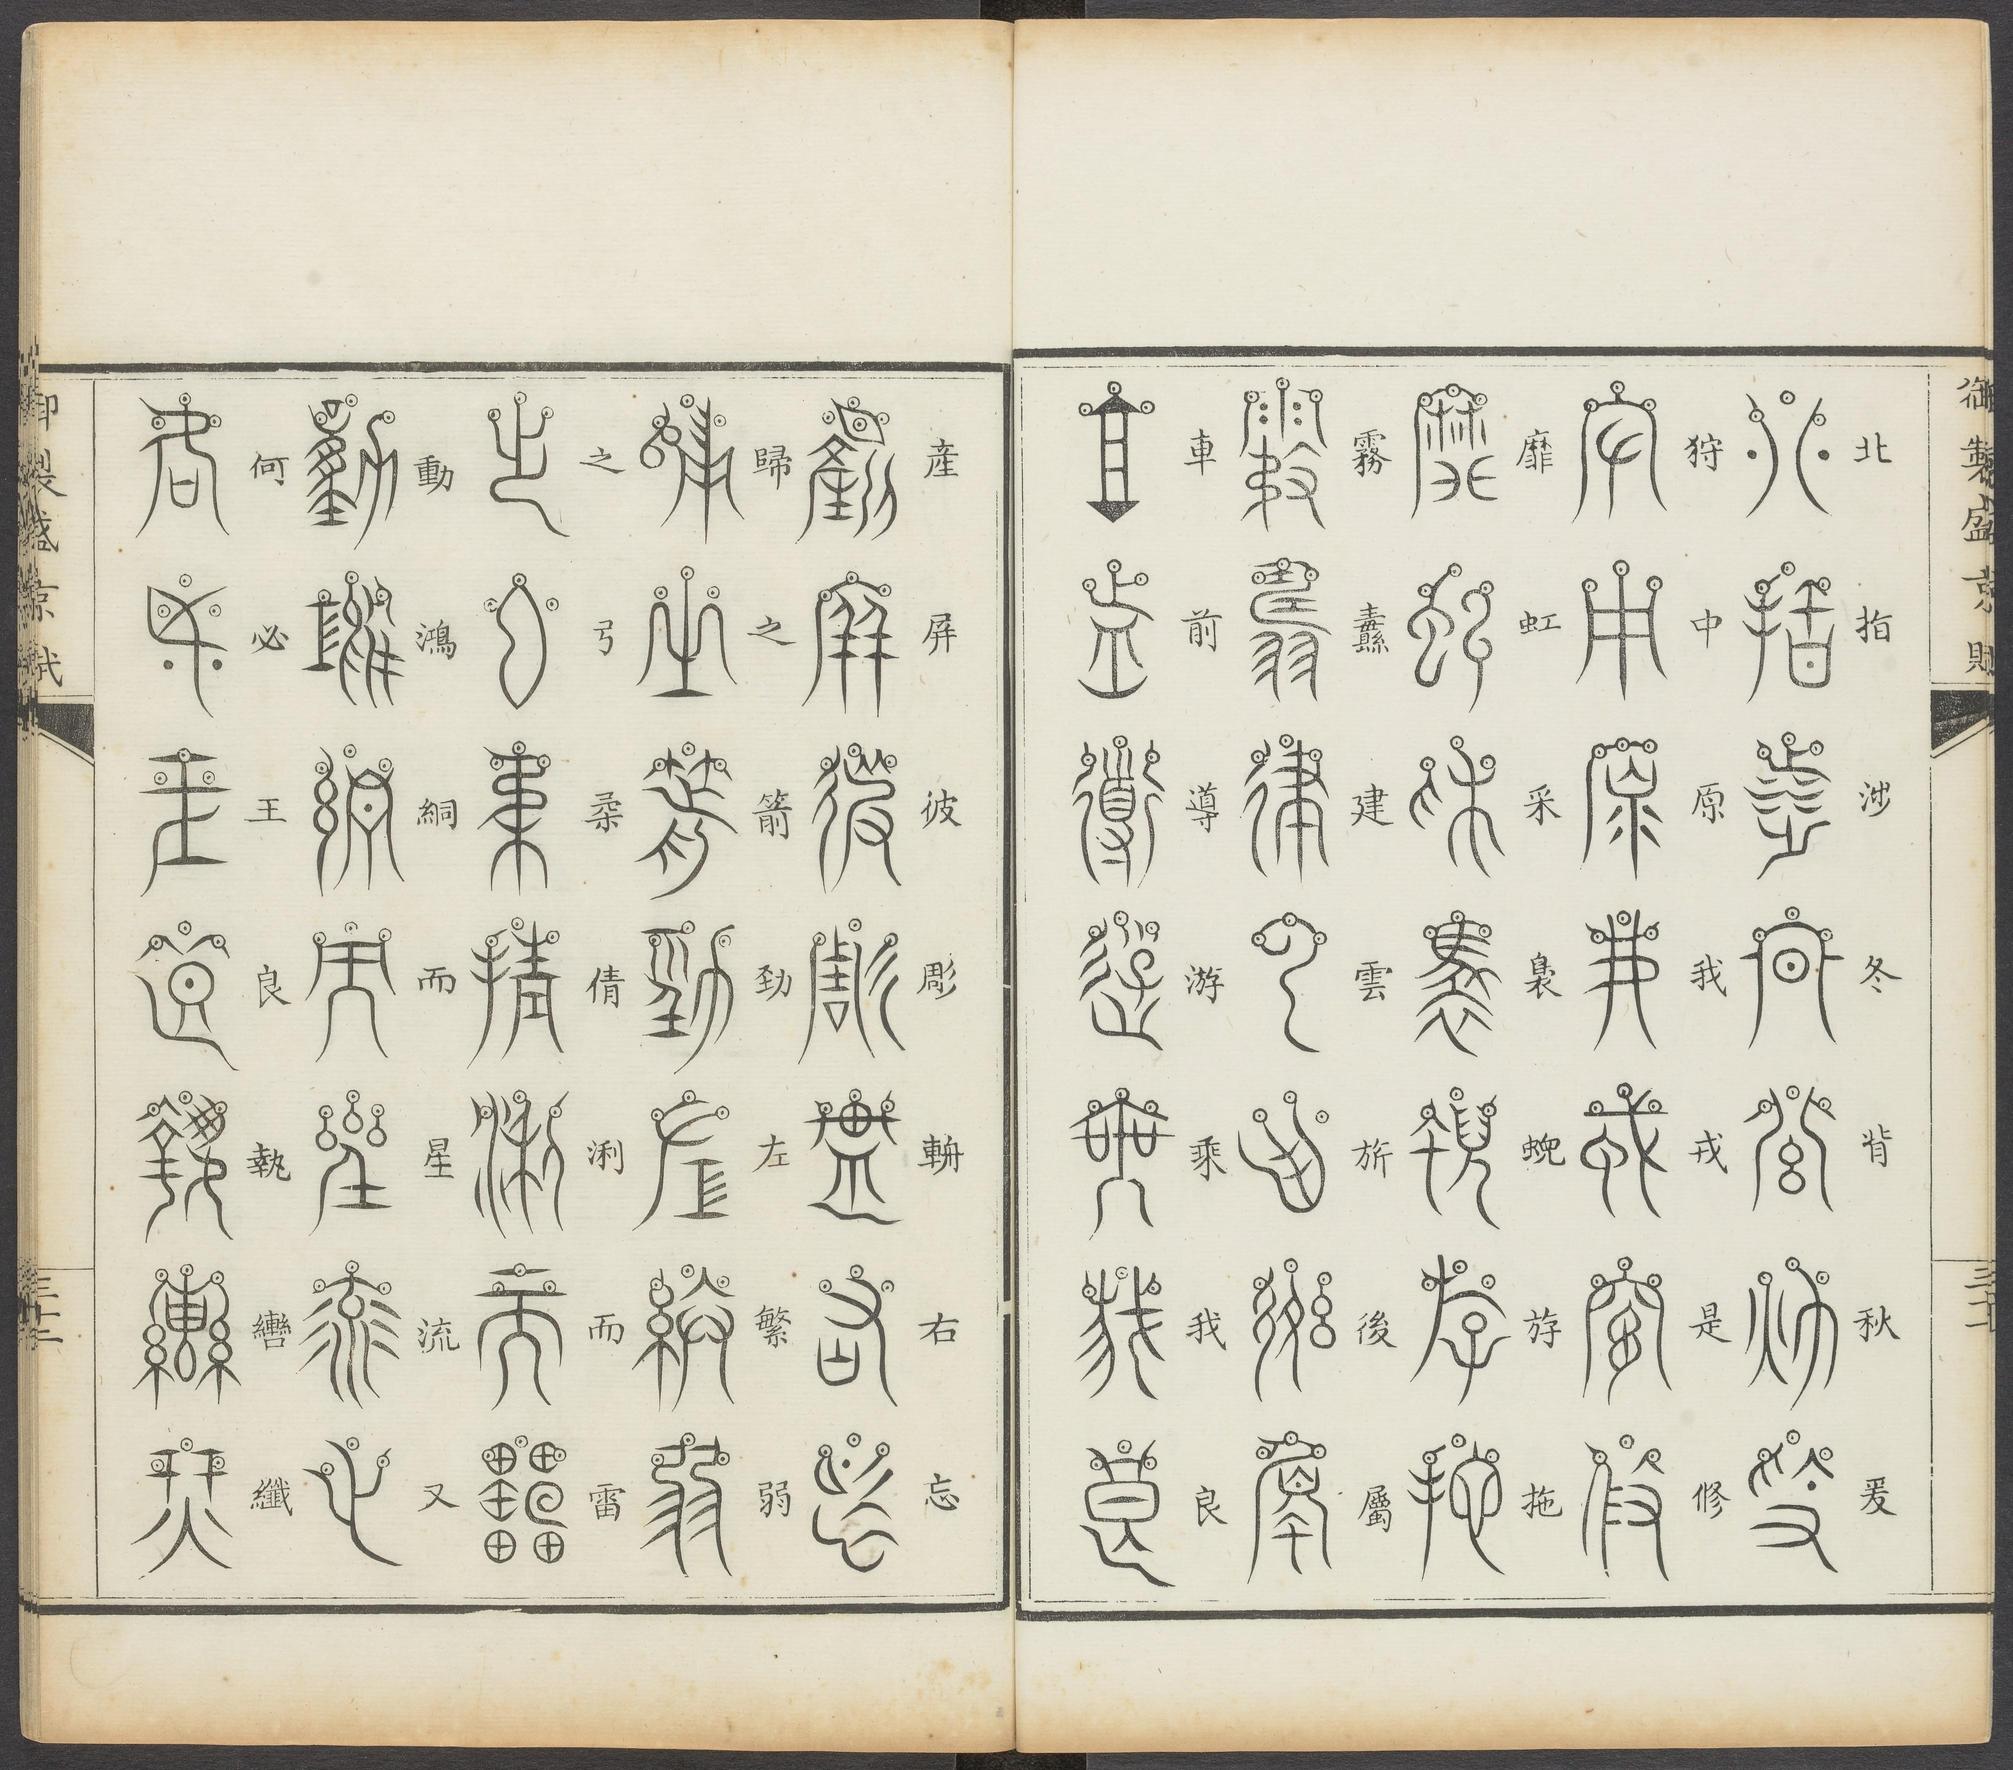 御製盛京賦
北指涉冬背秋爰
狩中原我戎是修
靡虹采裊蜺斿拖
霧纛建雲旂後屬
車前導游乘我良
產屏彼彫輈右忘
歸之箭勁左繁弱
之弓桑倩浰而雷
動鴻絅而星流又
何必王良執轡纖
御製盛京賦